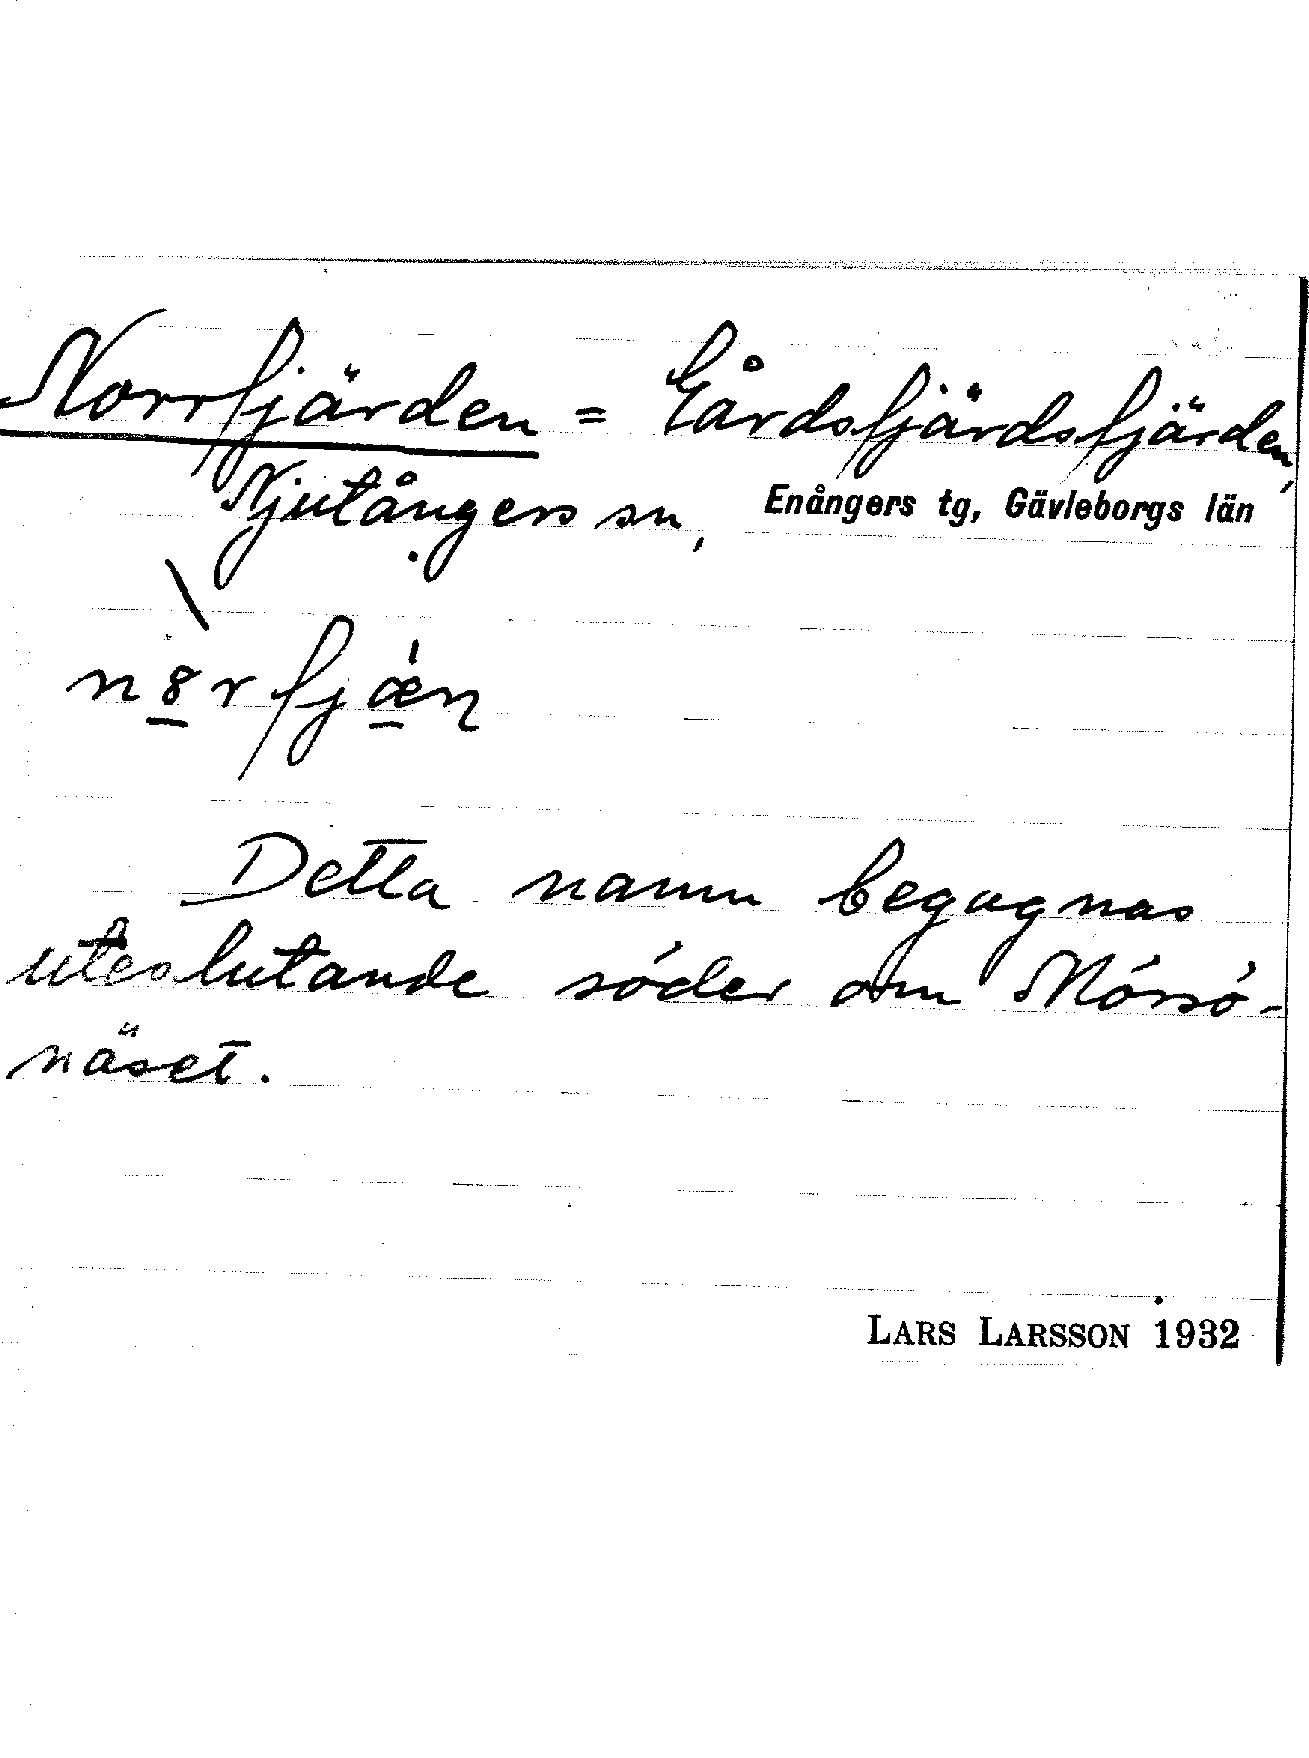 Norrfjärden = Gårdsfjärdsfjärden,
Njutångers sn, Enångers tg, Gävleborgs län
n8rfjæn
Detta namn begagnas
uteslutande söder om Mörsö-
näset.
LARS LARSSON 1932